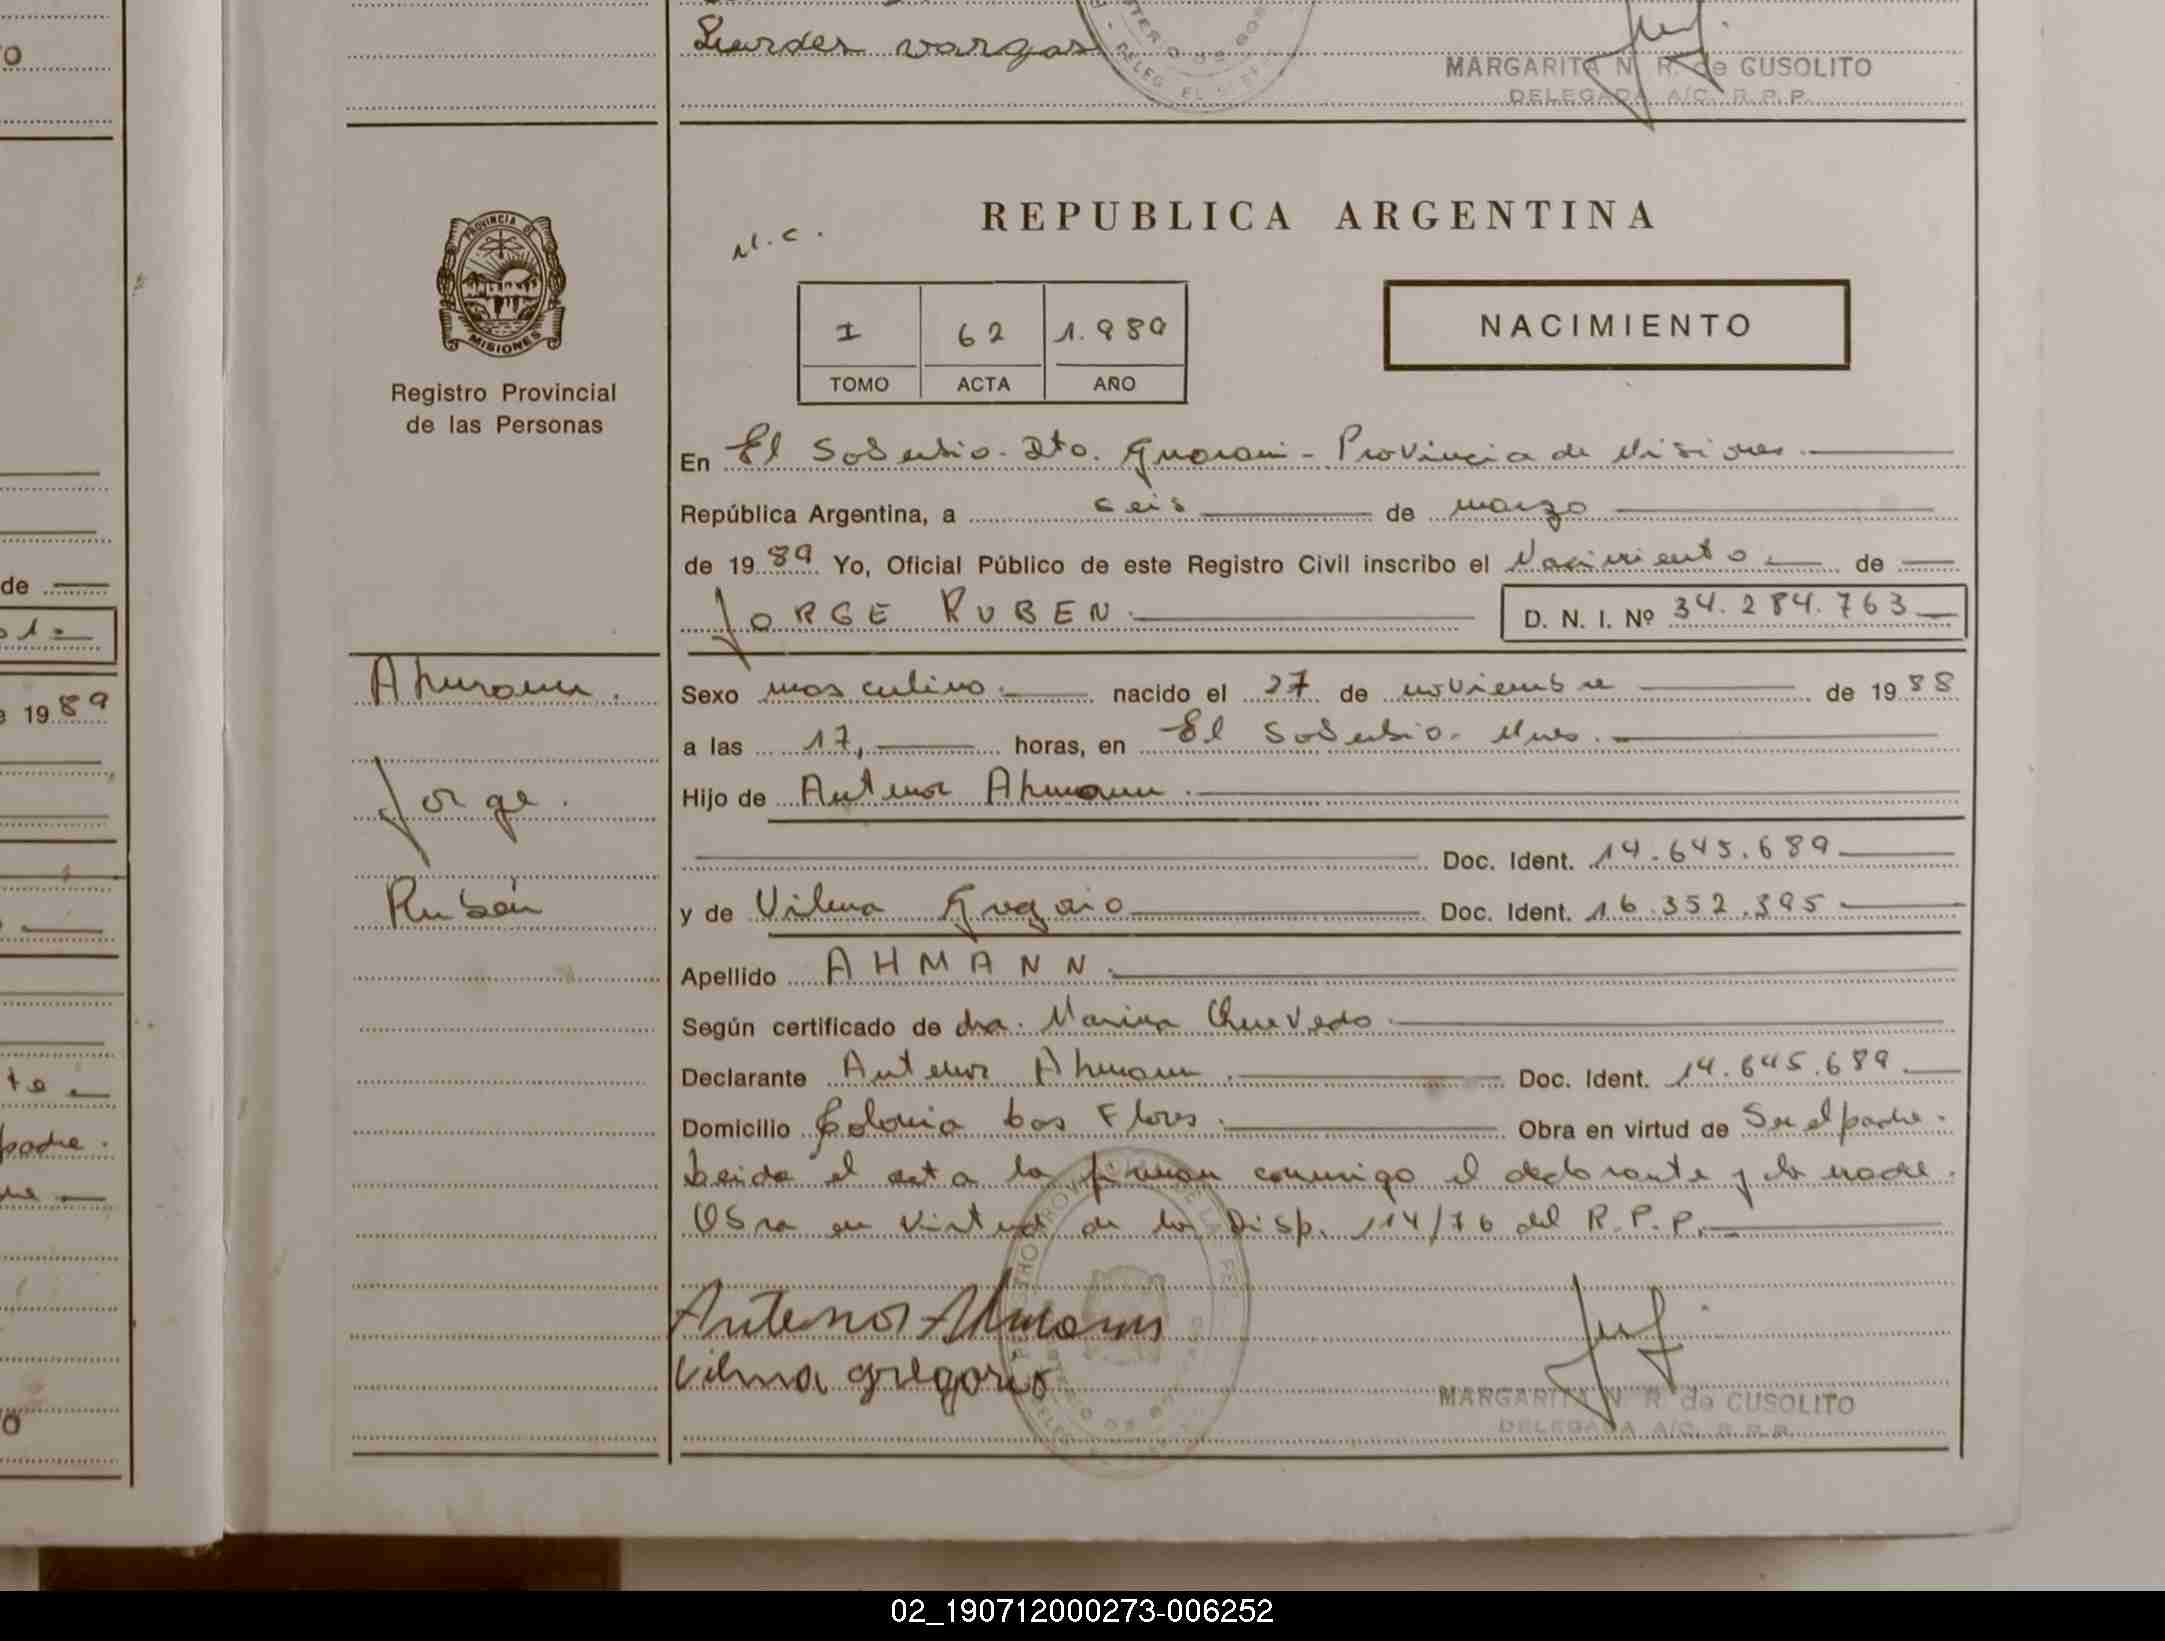 Lurdes vargas
MARGARITA N. R. de CUSOLITO
DELEGADA A/C. R.P.P.
PROVINCIA DE
MISIONES
Registro Provincial
de las Personas
REPUBLICA ARGENTINA
N.C.
I 62 1.989
TOMO ACTA AÑO
NACIMIENTO
En El Soberbio. Dto. Guarani - Provincia de Misiones.
República Argentina, a seis de marzo
de 1989 Yo, Oficial Público de este Registro Civil inscribo el Nacimiento de
JORGE RUBEN. D. N. I. Nº 34.284.763
Ahmann.
Jorge.
Rubén
Sexo masculino. nacido el 27 de noviembre de 1988
a las 17, horas, en El Soberbio. Mnes.
Hijo de Antenor Ahmann.
Doc. Ident. 14.645.689
y de Vilma Gregorio Doc. Ident. 16.352.395
Apellido AHMANN.
Según certificado de dra. Marina Quevedo.
Declarante Antenor Ahmann. Doc. Ident. 14.645.689
Domicilio Colonia Las Flores. Obra en virtud de Ser el padre.
Leida el acta la firman conmigo el declarante y la madre.
Obra en virtud de la Disp. 114/76 del R.P.P.
Antenor Ahmann
Vilma gregorio
MARGARITA N. R. de CUSOLITO
DELEGADA A/C. R.P.P.
de
e 1989
padre.
02_190712000273-006252